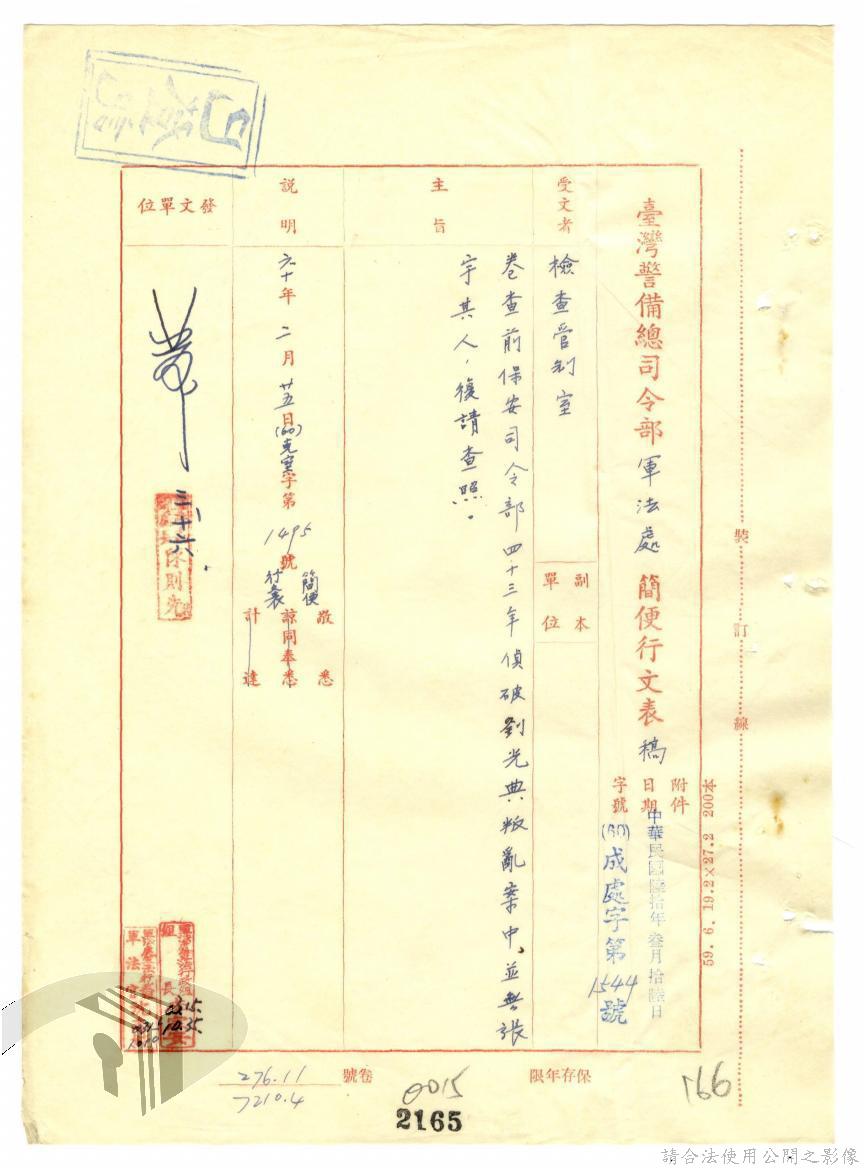 臺灣警備總司令部軍法處簡便行文表稿
附件
日期 中華民國陸拾年叁月拾陸日
字號 (60)成處字第1544號
受文者 檢查管制室
副本單位
主旨 卷查前保安司令部四十三年偵破劉光典叛亂案中、並無張
宇其人,復請查照。
說明 六十年二月廿五日(60)克室字第1495號簡便行表敬悉
諒同奉悉
計達
發文單位
三十六.
陳則
組長
0315.
軍法官
0315
1010
裝訂線
59. 6. 19.2×27.2 200本
保存年限
0015
卷號
276.11
7210.4
166
2165
請合法使用公開之影像